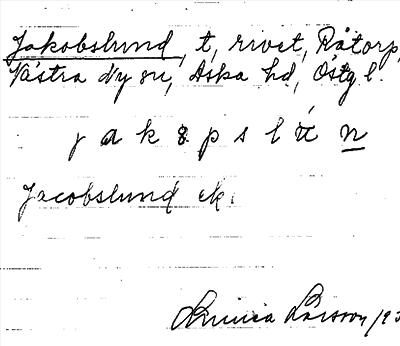 Jakobslund, t, rivet, Råtorp,
Västra Ny sn, Aska hd, Östg l.
j a k ɞ p s l ú n
Jacobslund ek.
Linnéa Larsson 193